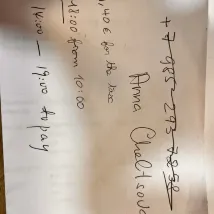 +7 985 293 7858
Anna Cheltsova
,40 € for the taxi
18:00 from 10:00
14:00 — 19:00 to pay